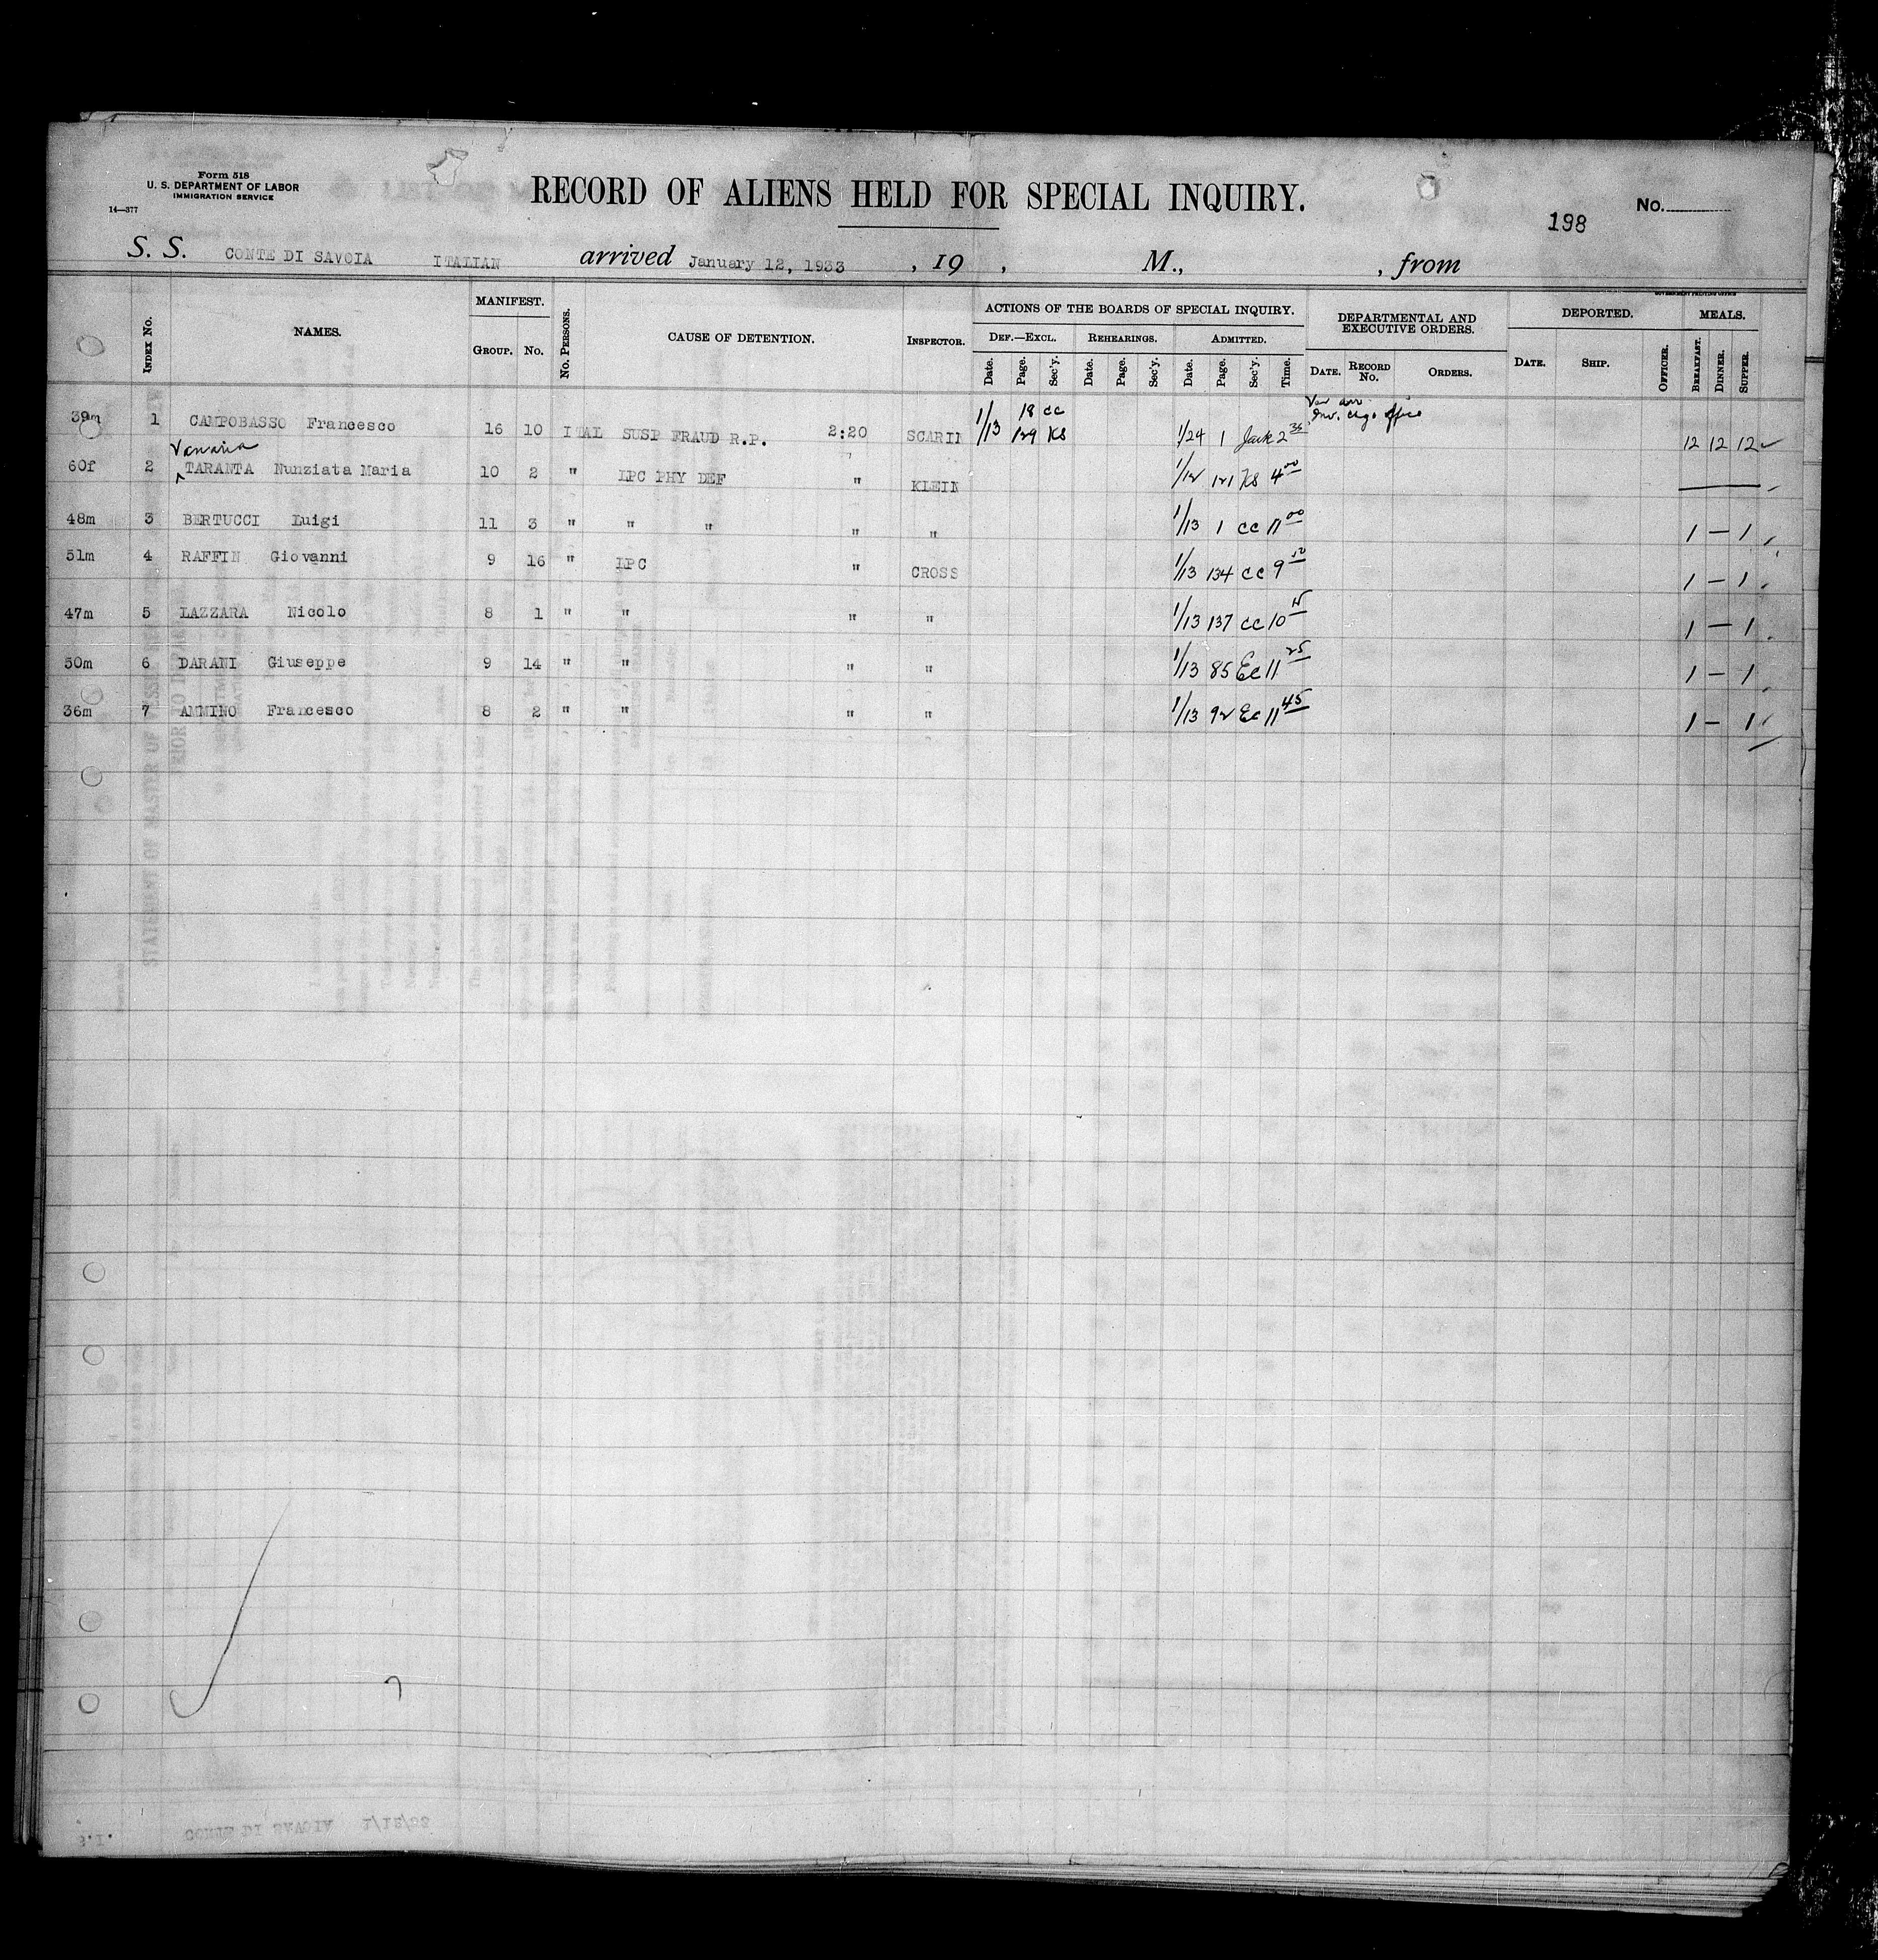 Form 518
U. S. DEPARTMENT OF LABOR
IMMIGRATION SERVICE
14—377
RECORD OF ALIENS HELD FOR SPECIAL INQUIRY.
198
No.
S. S. CONTE DI SAVOIA ITALIAN arrived January 12, 1933 , 19 , M., , from
GOVERNMENT PRINTING OFFICE
INDEX No. NAMES. MANIFEST. No. PERSONS. CAUSE OF DETENTION. INSPECTOR. ACTIONS OF THE BOARDS OF SPECIAL INQUIRY. DEPARTMENTAL AND EXECUTIVE ORDERS. DEPORTED. MEALS.
GROUP. No. DEF.—EXCL. REHEARINGS. ADMITTED.
Date. Page. Sec'y. Date. Page. Sec'y. Date. Page. Sec'y. Time. DATE. RECORD No. ORDERS. DATE. SHIP. OFFICER. BREAKFAST. DINNER. SUPPER.
18 CC
39m 1 CAMPOBASSO Francesco 16 10 ITAL SUSP FRAUD R.P. 2:20 SCARIN 1/13 129 KS 1/24 1 Jack 2 35 12 12 12
60f 2 Vanaria TARANTA Nunziata Maria 10 2 " LPC PHY DEF " KLEIN 1/12 121 KS 4 00
48m 3 BERTUCCI Luigi 11 3 " " " " " 1/13 1 CC 11 00 1 — 1
51m 4 RAFFIN Giovanni 9 16 " LPC " CROSS 1/13 134 CC 9 50 1 — 1
47m 5 LAZZARA Nicolo 8 1 " " " " 1/13 137 CC 10 15 1 — 1
50m 6 DARANI Giuseppe 9 14 " " " " 1/13 85 EC 11 25 1 — 1
36m 7 AMMINO Francesco 8 2 " " " " 1/13 92 EC 11 45 1 — 1
7